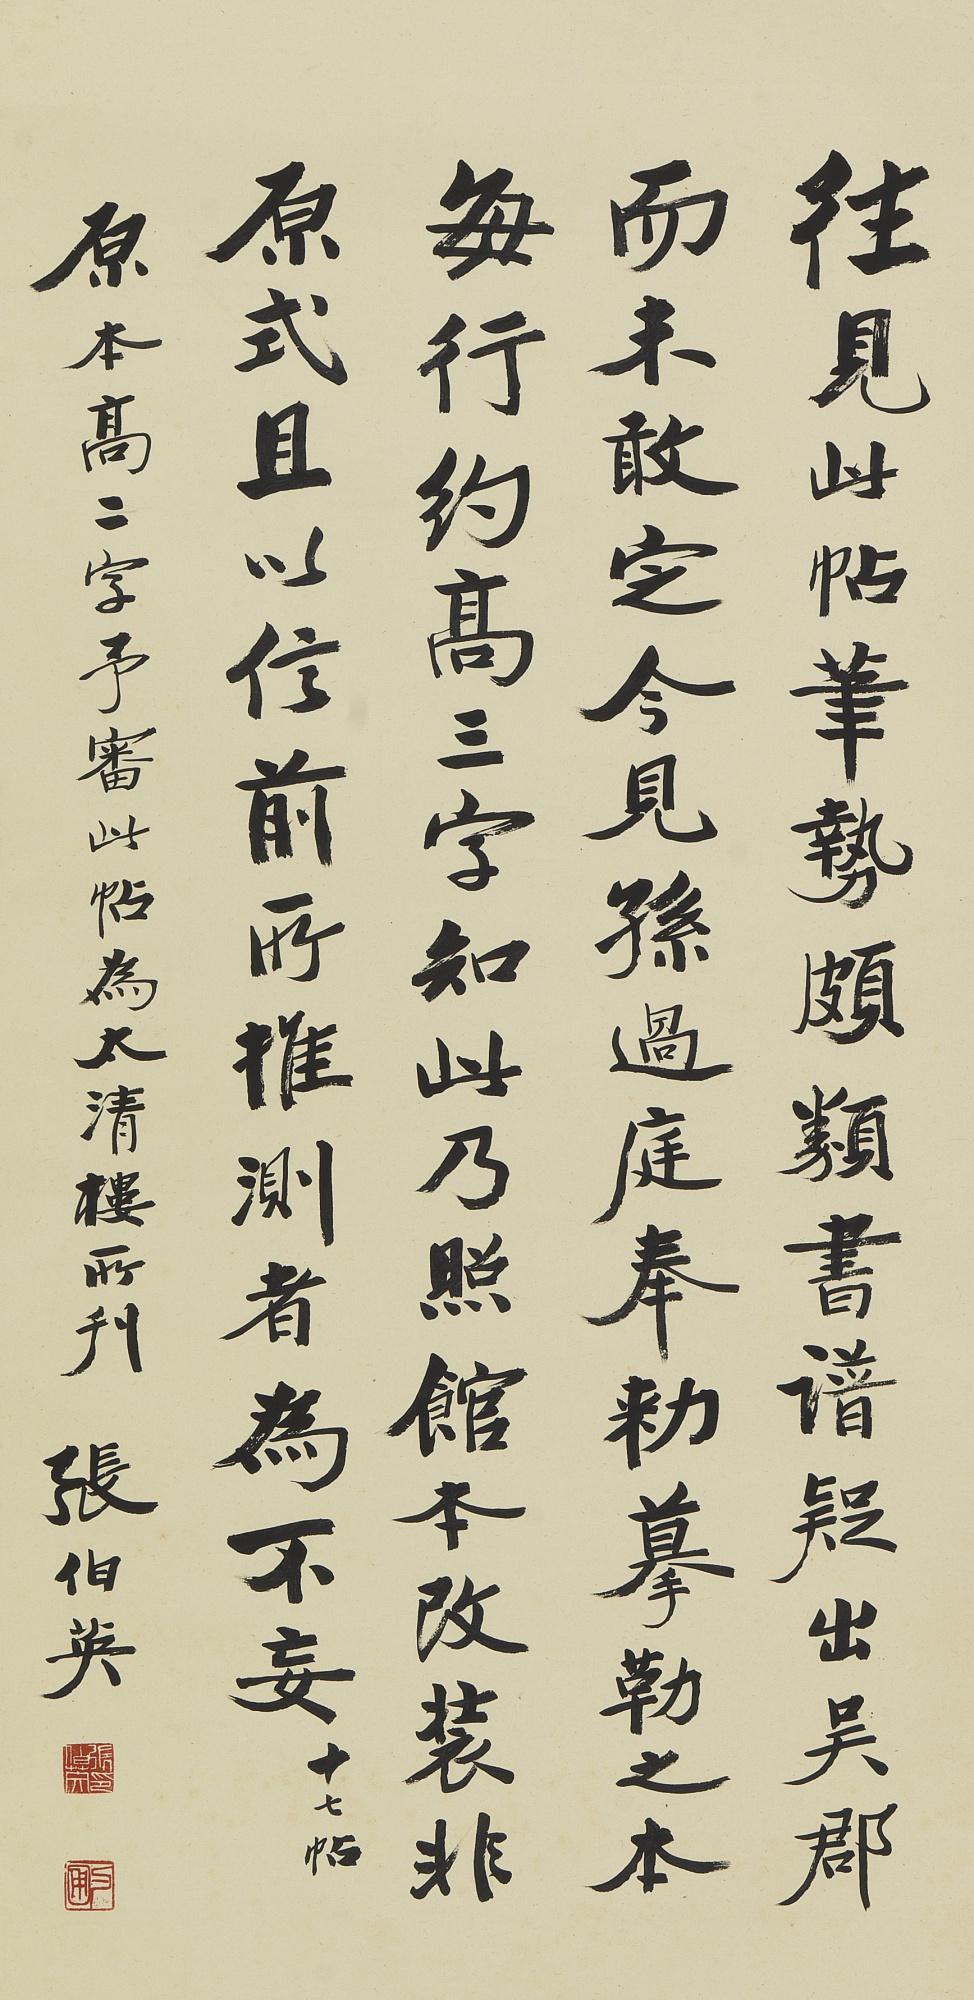 往見此帖筆勢頗類書譜疑出吴郡
而未敢定今見孫過庭奉勑摹勒之本
每行約高三字知此乃照館本改装非
原式且以信前所推測者為不妄
十七帖
原本高二字予審此帖為太清樓所刋
張伯英